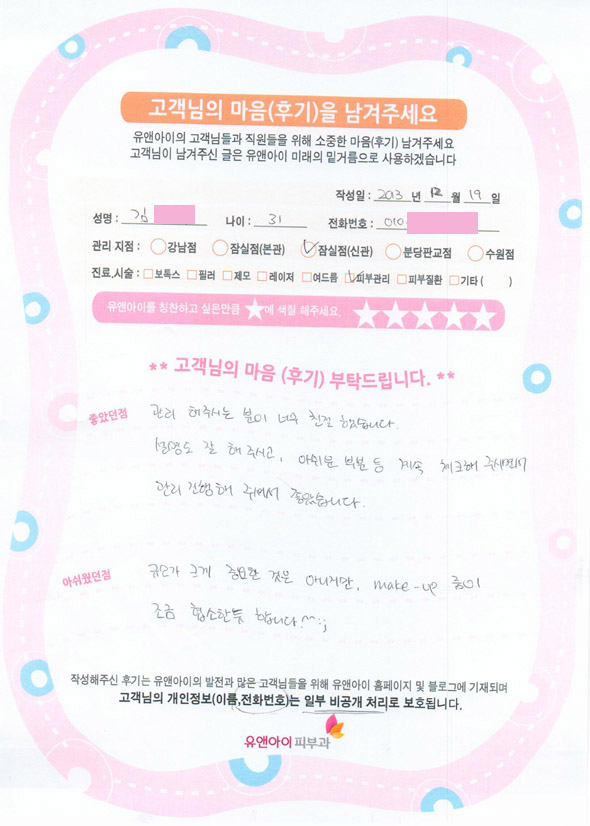 고객님의 마음(후기)을 남겨주세요
유앤아이의 고객님들과 직원들을 위해 소중한 마음(후기) 남겨주세요
고객님이 남겨주신 글은 유앤아이 미래의 밑거름으로 사용하겠습니다
작성일 : 2013 년 12 월 19 일
성명 : 김 나이 : 31 전화번호 : 010
관리 지점 : 강남점 잠실점(본관) 잠실점(신관) 분당판교점 수원점
진료,시술 : 보톡스 필러 제모 레이저 여드름 피부관리 피부질환 기타 ( )
유앤아이를 칭찬하고 싶은만큼 ★에 색칠 해주세요. ★★★★★
** 고객님의 마음 (후기) 부탁드립니다. **
좋았던점 관리 해주시는 분이 너무 친절 했습니다.
설명도 잘 해 주시고, 아쉬운 부분 등 계속 체크해 주시면서
관리 진행해 주셔서 좋았습니다.
아쉬웠던점 공간가 크게 중요한 것은 아니지만, make-up 룸이
조금 협소한듯 합니다.^^;;
작성해주신 후기는 유앤아이의 발전과 많은 고객님들을 위해 유앤아이 홈페이지 및 블로그에 기재되며
고객님의 개인정보(이름,전화번호)는 일부 비공개 처리로 보호됩니다.
유앤아이 피부과